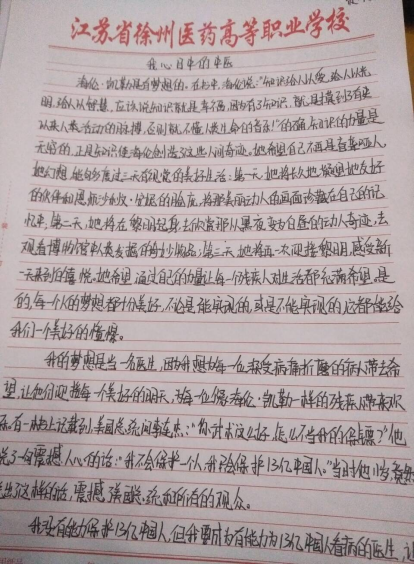 江苏省徐州医药高等职业学校
我心目中的中医
海伦·凯勒是有梦想的,在书中,海伦说:“知识给人以爱,给人以光
明,给人以智慧,应该说知识就是幸福,因为有了知识,就是摸到了有史
以来人类活动的脉搏,否则就不懂人类生命的音乐!”的确,知识的力量是
无穷的,正是知识使海伦创造了这些人间奇迹。她希望自己不再是盲聋哑人,
她幻想能够度过三天有视觉的美好生活:第一天,她将长久地凝望她友好
的伙伴和恩师沙利文·宝民的脸庞,将那美丽动人的画面珍藏在自己的记
忆中,第二天,她将在黎明起身去欣赏那从黑夜变为白昼的动人奇迹,去
观看博物馆中人类发掘的奇妙物品;第三天,她将再一次迎接黎明,感受新
一天来到的喜悦。她希望通过自己的力量让每一个残疾人对生活都充满希望。是
的,每个人的梦想都十分美好,不论是能实现的,或是不能实现的,它都带给
我们一个美好的憧憬。
我的梦想是当一名医生,因为我想为每一位接受病痛折磨的病人带去希
望,让他们迎接每一个美好的明天,为每一位像海伦·凯勒一样的残疾人带来欢
乐。有一本书上记载到美国总统问李连杰:“你武术这么好,怎么不当我的保镖?”他
说了一句震撼人心的话:“我不会保护一个人,我只会保护13亿中国人。”当时他11岁,竟然
说出了这样的话,震撼了美国总统和所有的观众。
我没有能力保护13亿中国人,但我要成为有能力为13亿中国人看病的医生,让